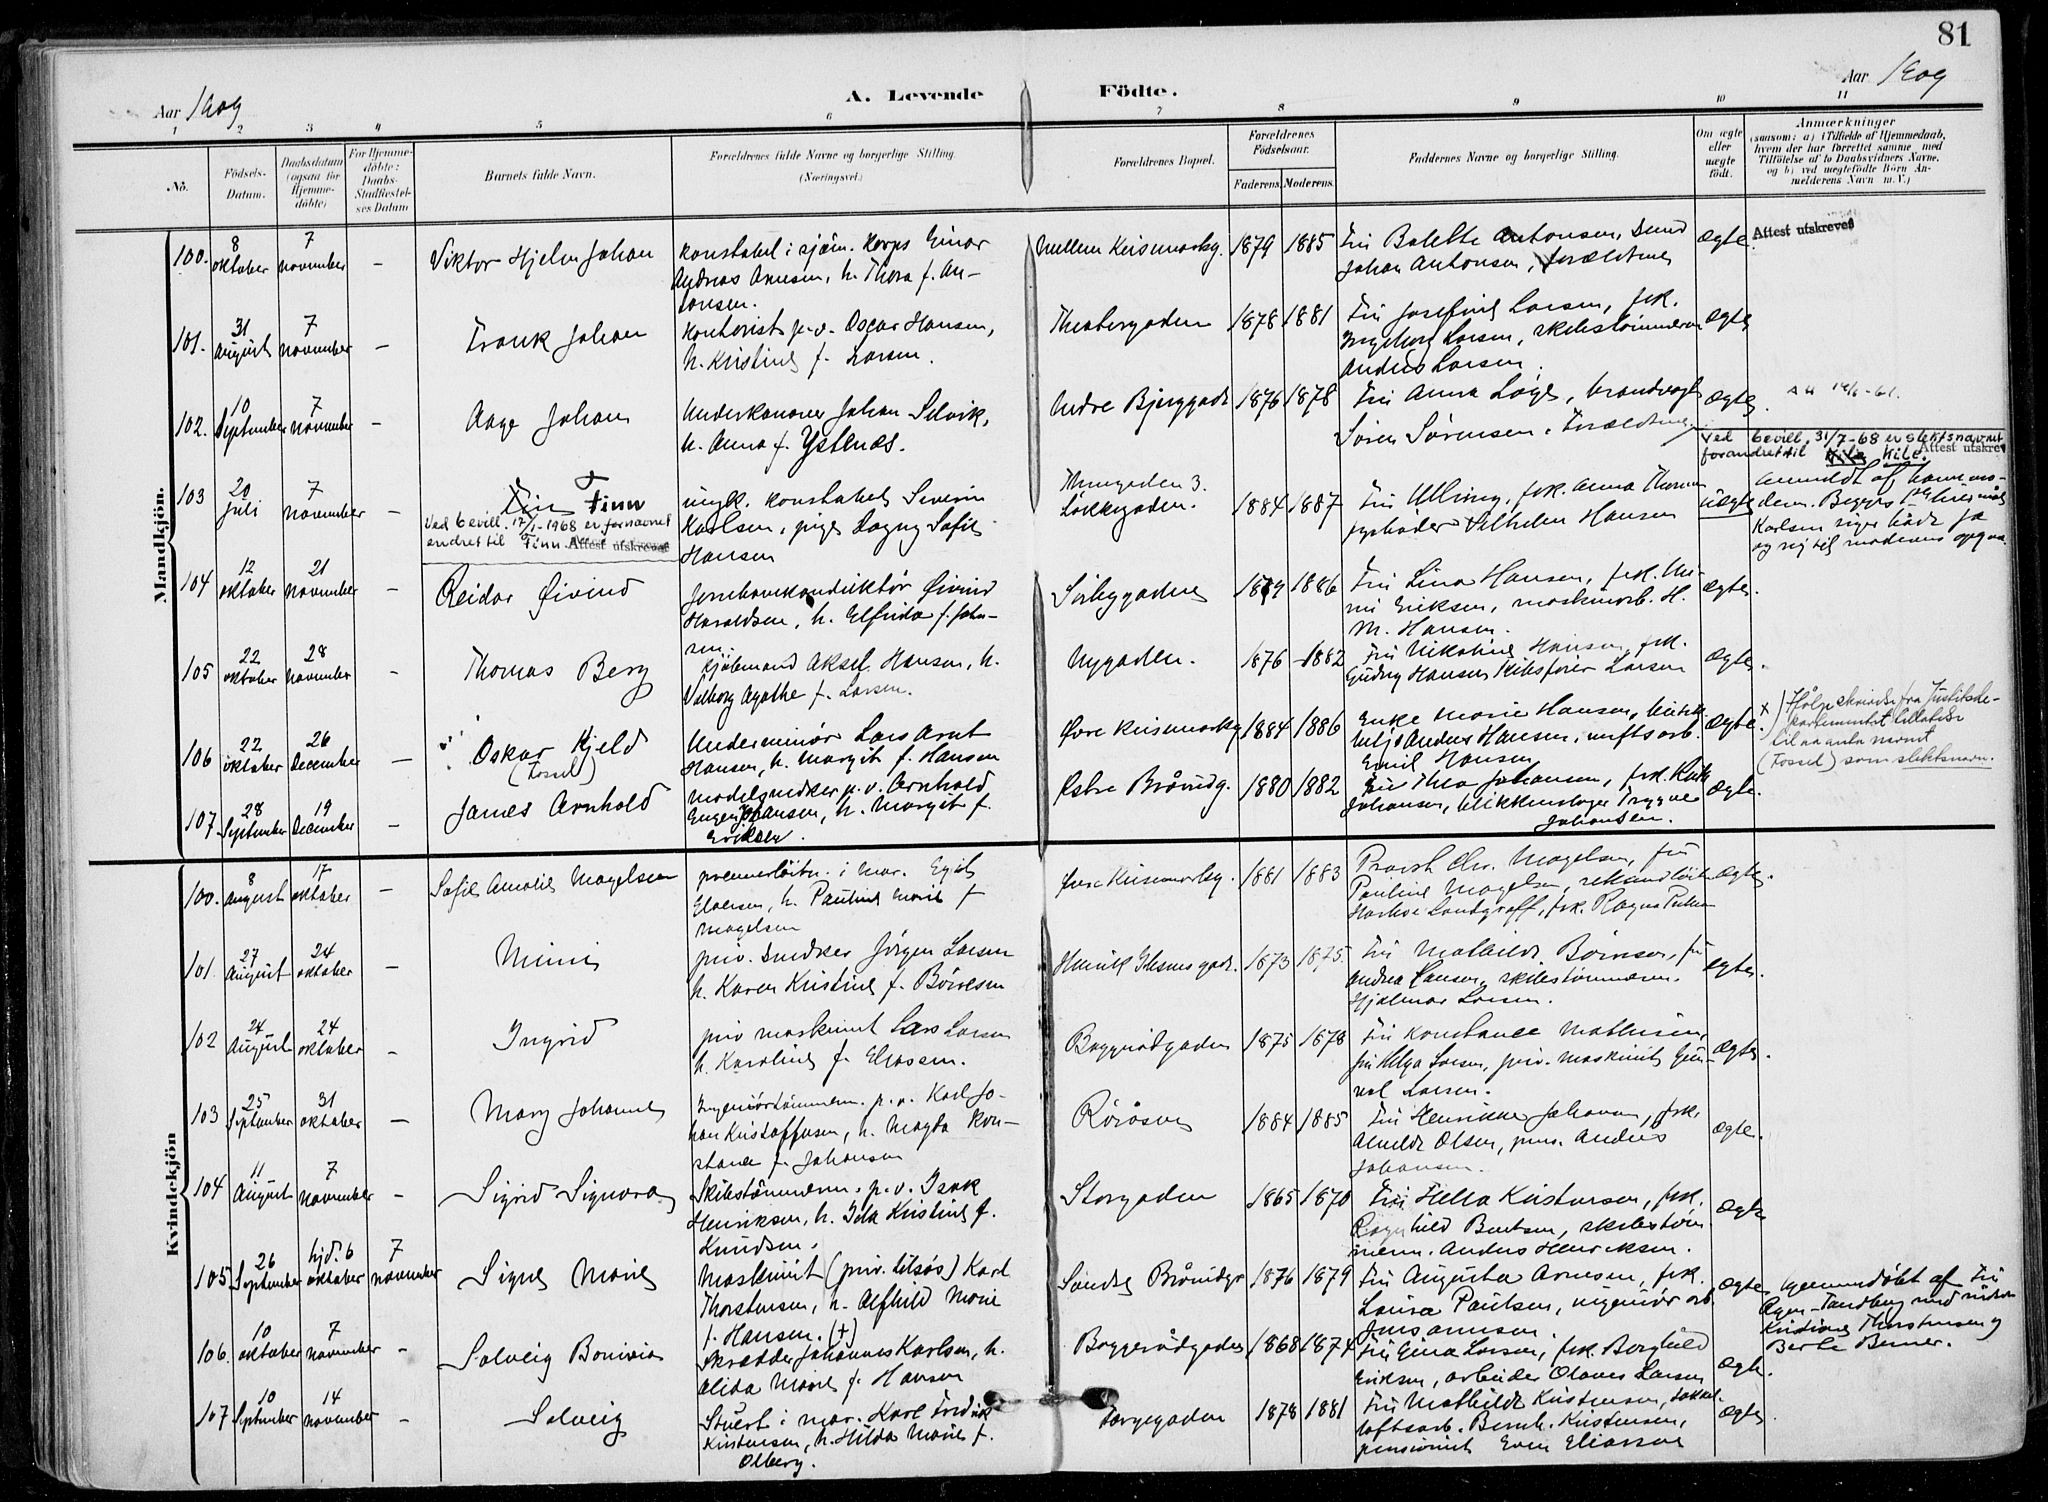 81
Aar 1909
A. Levende Födte.
Aar 1909
1 2 3 4 5 6 7 8 9 10 11
No.
Födsels-Datum.
Daabsdatum (ogsaa for Hjemmedöbte)
For Hjemmedöbte: Daabs-Stadfæstelses Datum
Barnets fulde Navn.
Forældrenes fulde Navne og borgerlige Stilling. (Næringsvei.)
Forældrenes Bopæl.
Forældrenes Födselsaar.
Faderens. Moderens.
Faddernes Navne og borgerlige Stilling.
Om ægte eller uægte födt.
Anmærkninger
(saasom: a) i Tilfælde af Hjemmedaab, hvem der har forrettet samme, med Tilföielse af to Daabsvidners Navne. og b) ved uægtefödte Börn Anmelderens Navn m. V.)
Mandkjön.
100. 8 oktober 7 november – Viktor Hjelm Johan
konstabel i sjöm. Korps Einar
Andreas Arnesen, h. Thora f. An-
tonsen.
Mellem Keisemarkg. 1879 1885
Fru Bolette Antonsen, Svend
Johan Antonsen, Forældrene
Ægte. Attest utskrevet
101. 31 August 7 november – Frank Johan
Kontorist p.v. Oscar Hansen,
h. Kristine f. Larsen.
Theatergaden 1878 1881
Fru Josefine Larsen, frk.
Ingeborg Larsen, skibstömmerm
Anders Larsen.
Ægte
102. 10 September 7 november – Aage Johan
Underkanoner Johan Selvik,
h. Anna f. Ystenæs.
Nedre Bjerggade 1876 1878
Fru Anna Löge, brandvagt
Sören Sörensen. Forældrene
Ægte.
103 20 Juli 7 november – Finn Finn
Ved bevill. 17/1-1968 er fornavnet
endret til Finn. Attest utskrevet
ungk. konstabel Severin
Karlsen, pige Dagny Sofie
Hansen
Thengaden 3.
Lökkegaden. 1884 1887
Fru Ulling, frk. Anna Thorsen
Vilhelm Hansen
uægte
Ved bevill. 31/7-68 er slektsnavnet
forandret til Kile Kile. Attest utskrevet
anmeldt af barnemo-
deren. Begges 1ste leiermål
Karlsen siger både ja
og nej til moderens opgave.
104 12 oktober 21 november – Reidar Öivind
Jernbanekonduktör Öivind
Haraldsen, h. Elfrida f. John-
sen.
Sibyegaden 1889 1886
Fru Lina Hansen, frk. Mi-
ni Eriksen, maskinarb. H.
M. Hansen.
Ægte.
105 22 oktober 28 november – Thomas Berg
Kjöbmand Aksel Hansen, h.
Valborg Agathe f. Larsen.
Nygaden. 1876 1882
Fru Nikoline Hansen, frk.
Gudny Hansen skibsförer Larsen
Ægte.
106 22 oktober 26 December – Oskar Kjeld
(Fossel)
Underminör Lars Arnt
Hansen, h. Margit f. Hansen
Övre Keisemarkg 1884 1886
Enke Marie Hansen,
Anders Hansen,
Emil Hansen
Ægte.
x) Ifölge skrivelse fra Justitsde-
partementet tillatelse
til aa anta navnet
(Fossel) som slektsnavn.
107 28 September 19 December – James Arnhold
Modelsnedker p.v. Arnhold
Eugen Johansen, h. Margit f.
Eriksen.
Östre Bråundg. 1880 1882
Fru Thea Johansen, frk. Ruth
Johansen, blikkenslager Trygve
Johansen.
Ægte.
Kvindekjön
100. 8 August 17 oktober – Sofie Amalie Magelsen
premierlöitn. i mar. Egil
Eliassen, h. Pauline Marie f
Magelsen
Övre Keisemarkg. 1881 1883
Provst Chr. Magelsen, fru
Pauline Magelsen, sekondlöit
Landgraff, frk. Ragna
Ægte.
101. 27 August 24 oktober – Mimi
priv. Snedker Jörgen Larsen
h. Karen Kristine f. Börresen
Henrik Ibsensgade. 1873 1875.
Fru Mathilde Börresen, fru
Andrea Larsen, skibstömmerm.
Hjalmar Larsen.
Ægte.
102 24 August 24 oktober – Ingrid
priv maskinist Lars Larsen
h. Karoline f. Eliassen.
Baggerödgaden 1875 1878
Fru Konstance Mathisen,
fru Helga Larsen, priv. maskinist Gun-
val Larsen.
Ægte.
103 25 September 31 oktober – Mary Johanne
Ingeniörtömmerm. p.v. Karl Jo-
han Kristoffersen, h. Magda Kon-
stance f. Johansen
Rörösen 1884 1885
Fru Henrikke Johansen, frk.
Alvilde Olsen, pens. Anders
Johansen.
Ægte.
104 11 August 7 november – Sigrid Signora
Skibstömmerm. p.v. Isak
Henriksen, h. Ida Kristine f.
Knudsen.
Storgaden 1865 1870
Fru Hella Kristensen, frk.
Ragnhild Bentsen, skibstöm-
merm. Anders Henriksen.
Ægte
105 26 September hjd. 6 oktober 7 november Signe Marie
Maskinist (priv. tilsös) Karl
Thorstensen, h. Alfhild Marie
f. Hansen. (+)
Söndre Bråundgt 1876 1879
Fru Augusta Arnesen, frk.
Laura Paulsen, ingeniör arb.
Jens Arnesen
Ægte
hjemmedöbt af Fru
Tandberg med vidner
Kristine Thorstensen og
Berte Berner.
106. 10 oktober 7 november – Solveig Bonivia
Skrædder Johannes Karlsen, h.
Alida Marie f. Hansen
Baggerödgaden 1868 1874
Fru Gina Larsen, frk. Borghild
Eriksen, arbeider Olaves Larsen
Ægte.
107 10 September 14 november – Solveig
Stuert i mar. Karl Fredrik
Kristensen, h. Hilda Marie f.
Olberg.
Torgegaden 1878 1881
Fru Mathilde Kristensen,
loftsarb. Bernh. Kristensen,
pensionist Even Eliassen
Ægte.